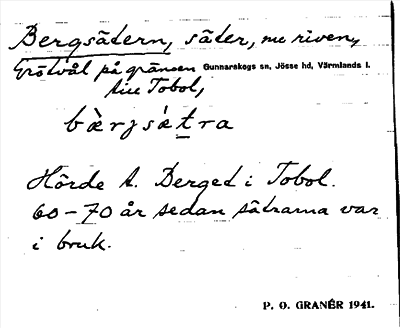 Bergsätern, säter, nu riven,
Grötvål på gränsen Gunnarskogs sn, Jösse hd, Värmlands l.
till Tobol,
bæ̀rjsætra
Hörde t. Berget i Tobol.
60-70 år sedan sätrarna var
i bruk.
P. O. GRANÉR 1941.